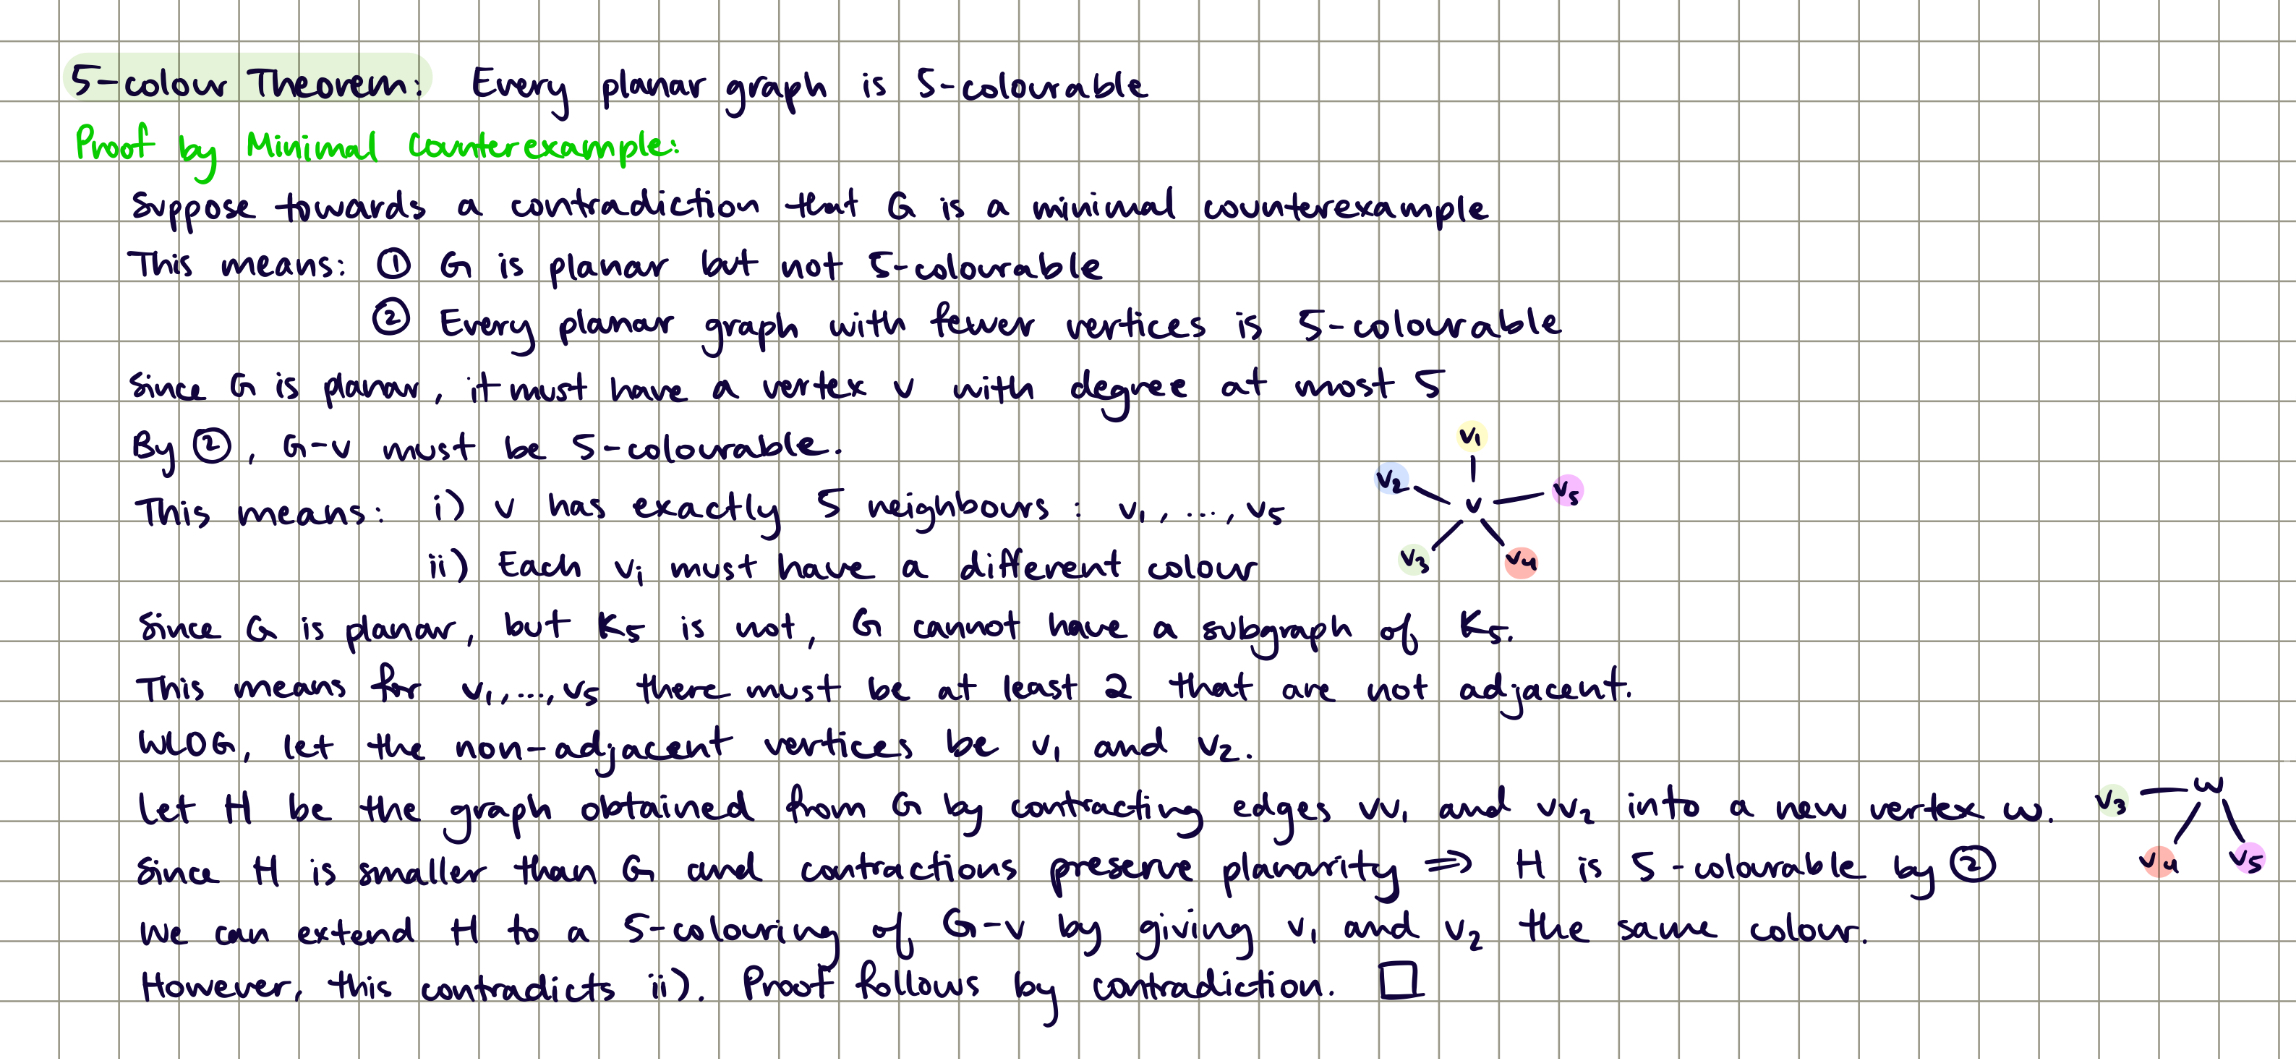 5-colour Theorem: Every planar graph is 5-colourable
Proof by Minimal Counterexample:
Suppose towards a contradiction that G is a minimal counterexample
This means: ① G is planar but not 5-colourable
② Every planar graph with fewer vertices is 5-colourable
Since G is planar, it must have a vertex v with degree at most 5
By ②, G-v must be 5-colourable.
This means: i) v has exactly 5 neighbours : v₁, ..., v₅
ii) Each vᵢ must have a different colour
v₁
v₂ v v₅
v₃ v₄
Since G is planar, but K₅ is not, G cannot have a subgraph of K₅.
This means for v₁,...,v₅ there must be at least 2 that are not adjacent.
WLOG, let the non-adjacent vertices be v₁ and v₂.
Let H be the graph obtained from G by contracting edges vv₁ and vv₂ into a new vertex w.
Since H is smaller than G and contractions preserve planarity ⇒ H is 5-colourable by ②
v₃ w
v₄ v₅
We can extend H to a 5-colouring of G-v by giving v₁ and v₂ the same colour.
However, this contradicts ii). Proof follows by contradiction. □